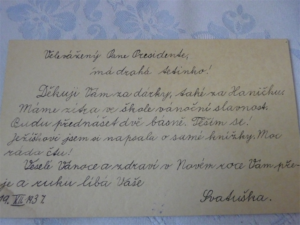 Velevážený Pane Presidente,
má drahá tetinko!
Děkuji Vám za dárky, také za Haničku.
Máme zítra ve škole vánoční slavnost
Budu přednášet dvě básně. Těším se.
Ježíškovi jsem si napsala o samé knížky. Moc
ráda čtu!
Veselé Vánoce a zdraví v Novém roce Vám pře-
je a ruku líbá Vaše
19. XII. 1937. Svatuška.